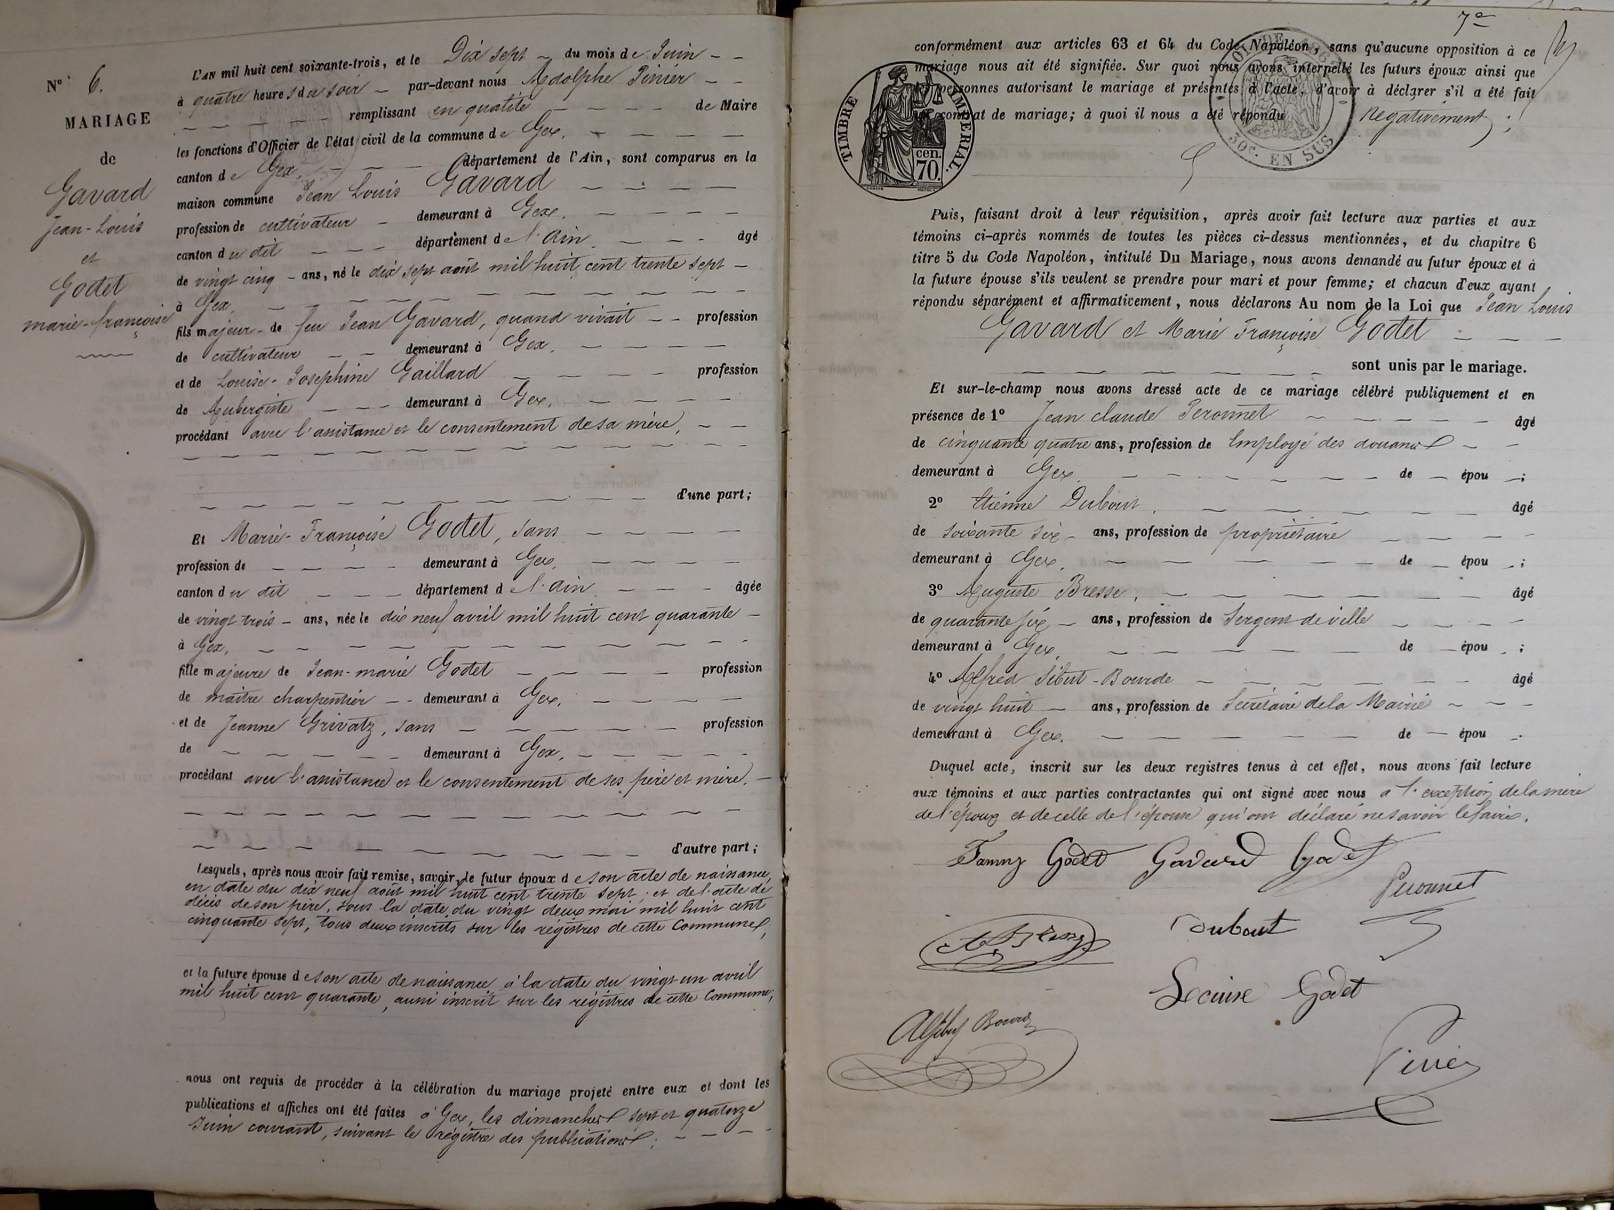 N° 6.
MARIAGE
de
Gavard
Jean-Louis
et
Godet
marie-françoise
L'AN mil huit cent soixante-trois, et le Dix sept du mois de Juin
à quatre heures du soir par-devant nous Adolphe
remplissant en qualité de Maire
les fonctions d'Officier de l'état civil de la commune de Gex,
canton de Gex, département de l'Ain, sont comparus en la
maison commune Jean Louis Gavard
profession de cultivateur demeurant à Gex.
canton du dit département de l'Ain. âgé
de vingt cinq ans, né le dix sept août mil huit cent trente sept
à Gex,
fils majeur de feu Jean Gavard, quand vivait profession
de cultivateur demeurant à Gex.
et de Louise-Josephine Gaillard profession
de Aubergiste demeurant à Gex.
procédant avec l'assistance et le consentement de sa mère,
d'une part;
Et Marie-Françoise Godet, sans
profession de demeurant à Gex.
canton du dit département de l'Ain âgée
de vingt trois ans, née le dix neuf avril mil huit cent quarante
à Gex,
fille majeure de Jean-marie Godet profession
de maître charpentier demeurant à Gex,
et de Jeanne Grivatz, sans profession
de demeurant à Gex.
procédant avec l'assistance et le consentement de ses père et mère.
d'autre part;
Lesquels, après nous avoir fait remise, savoir, le futur époux de son acte de naissance,
en date du dix neuf août mil huit cent trente sept, et de l'acte de
décès de son père, sous la date du vingt deux mai mil huit cent
cinquante sept, tous deux inscrits sur les régistres de cette Commune,
et la future épouse de son acte de naissance, à la date du vingt un avril
mil huit cent quarante, aussi inscrit sur les régistres de cette Commune;
nous ont requis de procéder à la célébration du mariage projeté entre eux et dont les
publications et affiches ont été faites à Gex, les dimanches sept et quatorze
Juin courant, suivant le régistre des publications;
7e
conformément aux articles 63 et 64 du Code Napoléon, sans qu'aucune opposition à ce
mariage nous ait été signifiée. Sur quoi nous avons interpellé les futurs époux ainsi que
personnes autorisant le mariage et présentes à l'acte, d'avoir à déclarer s'il a été fait
contrat de mariage; à quoi il nous a été répondu Négativement;
TIMBRE IMPÉRIAL
cen. 70.
50c. EN SUS
Puis, faisant droit à leur réquisition, après avoir fait lecture aux parties et aux
témoins ci-après nommés de toutes les pièces ci-dessus mentionnées, et du chapitre 6
titre 5 du Code Napoléon, intitulé Du Mariage, nous avons demandé au futur époux et à
la future épouse s'ils veulent se prendre pour mari et pour femme; et chacun d'eux ayant
répondu séparément et affirmativement, nous déclarons Au nom de la Loi que Jean Louis
Gavard et Marie Françoise Godet
sont unis par le mariage.
Et sur-le-champ nous avons dressé acte de ce mariage célébré publiquement et en
présence de 1° Jean claude Peronnet âgé
de cinquante quatre ans, profession de Employé des douanes
demeurant à Gex. de épou ;
2° Etienne Dubout, âgé
de soixante six ans, profession de propriétaire
demeurant à Gex. de épou ;
3° Auguste Bresse, âgé
de quarante six ans, profession de Sergent de ville
demeurant à Gex, de épou ;
4° Alfred Sibut-Bourde âgé
de vingt huit ans, profession de Secrétaire de la Mairie
demeurant à Gex. de épou .
Duquel acte, inscrit sur les deux registres tenus à cet effet, nous avons fait lecture
aux témoins et aux parties contractantes qui ont signé avec nous à l'exception de la mère
de l'époux et de celle de l'épouse qui ont déclaré ne savoir le faire.
Fanny Godet Gavard Godet
Peronnet
A Bresse Dubout
Louise Godet
A Sibut Bourde